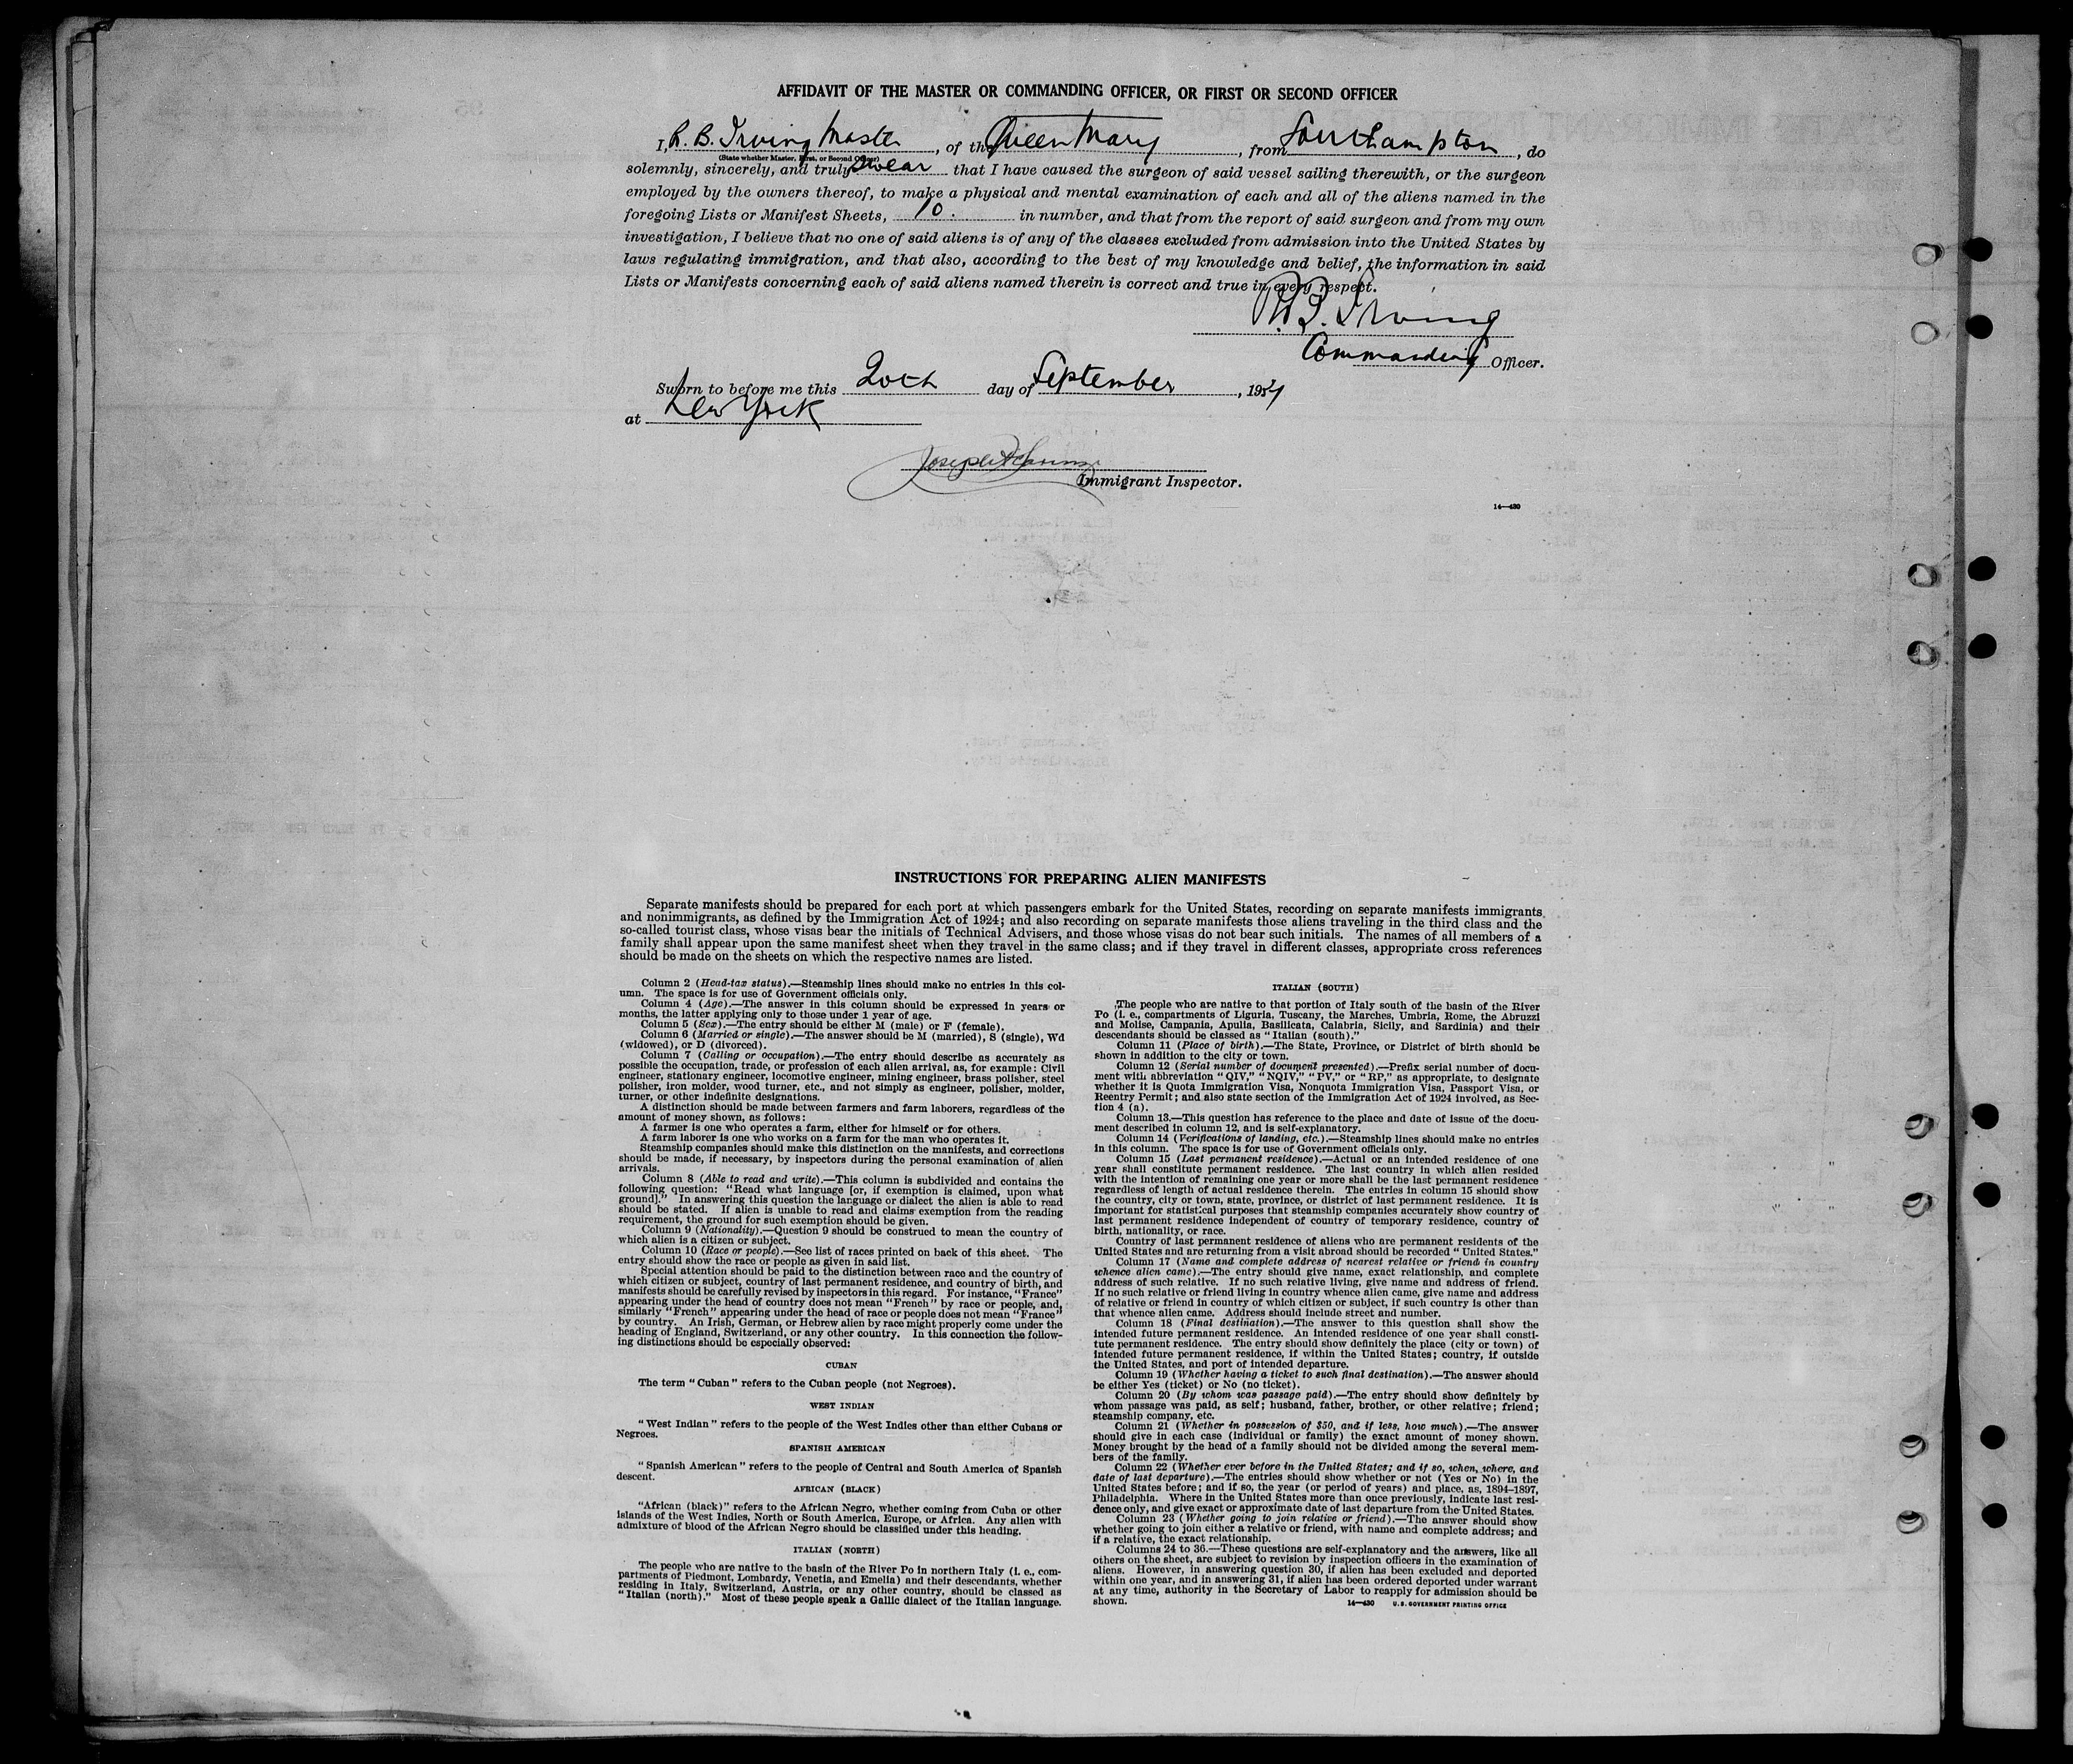 AFFIDAVIT OF THE MASTER OR COMMANDING OFFICER, OR FIRST OR SECOND OFFICER
I, R. B. Irving Master, of the Queen Mary, from Southampton, do
(State whether Master, First, or Second Officer)
solemnly, sincerely, and truly swear that I have caused the surgeon of said vessel sailing therewith, or the surgeon
employed by the owners thereof, to make a physical and mental examination of each and all of the aliens named in the
foregoing Lists or Manifest Sheets, 10. in number, and that from the report of said surgeon and from my own
investigation, I believe that no one of said aliens is of any of the classes excluded from admission into the United States by
laws regulating immigration, and that also, according to the best of my knowledge and belief, the information in said
Lists or Manifests concerning each of said aliens named therein is correct and true in every respect.
R. B. Irving
Commanding Officer.
Sworn to before me this 20th day of September, 193
at New York
Joseph
Immigrant Inspector.
14—430
INSTRUCTIONS FOR PREPARING ALIEN MANIFESTS
Separate manifests should be prepared for each port at which passengers embark for the United States, recording on separate manifests immigrants
and nonimmigrants, as defined by the Immigration Act of 1924; and also recording on separate manifests those aliens traveling in the third class and the
so-called tourist class, whose visas bear the initials of Technical Advisers, and those whose visas do not bear such initials. The names of all members of a
family shall appear upon the same manifest sheet when they travel in the same class; and if they travel in different classes, appropriate cross references
should be made on the sheets on which the respective names are listed.
Column 2 (Head-tax status).—Steamship lines should make no entries in this col-
umn. The space is for use of Government officials only.
Column 4 (Age).—The answer in this column should be expressed in years or
months, the latter applying only to those under 1 year of age.
Column 5 (Sex).—The entry should be either M (male) or F (female).
Column 6 (Married or single).—The answer should be M (married), S (single), Wd
(widowed), or D (divorced).
Column 7 (Calling or occupation).—The entry should describe as accurately as
possible the occupation, trade, or profession of each alien arrival, as, for example: Civil
engineer, stationary engineer, locomotive engineer, mining engineer, brass polisher, steel
polisher, iron molder, wood turner, etc., and not simply as engineer, polisher, molder,
turner, or other indefinite designations.
A distinction should be made between farmers and farm laborers, regardless of the
amount of money shown, as follows:
A farmer is one who operates a farm, either for himself or for others.
A farm laborer is one who works on a farm for the man who operates it.
Steamship companies should make this distinction on the manifests, and corrections
should be made, if necessary, by inspectors during the personal examination of alien
arrivals.
Column 8 (Able to read and write).—This column is subdivided and contains the
following question: "Read what language [or, if exemption is claimed, upon what
ground]." In answering this question the language or dialect the alien is able to read
should be stated. If alien is unable to read and claims exemption from the reading
requirement, the ground for such exemption should be given.
Column 9 (Nationality).—Question 9 should be construed to mean the country of
which alien is a citizen or subject.
Column 10 (Race or people).—See list of races printed on back of this sheet. The
entry should show the race or people as given in said list.
Special attention should be paid to the distinction between race and the country of
which citizen or subject, country of last permanent residence, and country of birth, and
manifests should be carefully revised by inspectors in this regard. For instance, "France"
appearing under the head of country does not mean "French" by race or people, and,
similarly "French" appearing under the head of race or people does not mean "France"
by country. An Irish, German, or Hebrew alien by race might properly come under the
heading of England, Switzerland, or any other country. In this connection the follow-
ing distinctions should be especially observed:
CUBAN
The term "Cuban" refers to the Cuban people (not Negroes).
WEST INDIAN
"West Indian" refers to the people of the West Indies other than either Cubans or
Negroes.
SPANISH AMERICAN
"Spanish American" refers to the people of Central and South America of Spanish
descent.
AFRICAN (BLACK)
"African (black)" refers to the African Negro, whether coming from Cuba or other
islands of the West Indies, North or South America, Europe, or Africa. Any alien with
admixture of blood of the African Negro should be classified under this heading.
ITALIAN (NORTH)
The people who are native to the basin of the River Po in northern Italy (i. e., com-
partments of Piedmont, Lombardy, Venetia, and Emelia) and their descendants, whether
residing in Italy, Switzerland, Austria, or any other country, should be classed as
"Italian (north)." Most of these people speak a Gallic dialect of the Italian language.
ITALIAN (SOUTH)
The people who are native to that portion of Italy south of the basin of the River
Po (i. e., compartments of Liguria, Tuscany, the Marches, Umbria, Rome, the Abruzzi
and Molise, Campania, Apulia, Basilicata, Calabria, Sicily, and Sardinia) and their
descendants should be classed as "Italian (south)."
Column 11 (Place of birth).—The State, Province, or District of birth should be
shown in addition to the city or town.
Column 12 (Serial number of document presented).—Prefix serial number of docu-
ment with abbreviation "QIV," "NQIV," "PV," or "RP," as appropriate, to designate
whether it is Quota Immigration Visa, Nonquota Immigration Visa, Passport Visa, or
Reentry Permit; and also state section of the Immigration Act of 1924 involved, as Sec-
tion 4 (a).
Column 13.—This question has reference to the place and date of issue of the docu-
ment described in column 12, and is self-explanatory.
Column 14 (Verifications of landing, etc.).—Steamship lines should make no entries
in this column. The space is for use of Government officials only.
Column 15 (Last permanent residence).—Actual or an intended residence of one
year shall constitute permanent residence. The last country in which alien resided
with the intention of remaining one year or more shall be the last permanent residence
regardless of length of actual residence therein. The entries in column 15 should show
the country, city or town, state, province, or district of last permanent residence. It is
important for statistical purposes that steamship companies accurately show country of
last permanent residence independent of country of temporary residence, country of
birth, nationality, or race.
Country of last permanent residence of aliens who are permanent residents of the
United States and are returning from a visit abroad should be recorded "United States."
Column 17 (Name and complete address of nearest relative or friend in country
whence alien came).—The entry should give name, exact relationship, and complete
address of such relative. If no such relative living, give name and address of friend.
If no such relative or friend living in country whence alien came, give name and address
of relative or friend in country of which citizen or subject, if such country is other than
that whence alien came. Address should include street and number.
Column 18 (Final destination).—The answer to this question shall show the
intended future permanent residence. An intended residence of one year shall consti-
tute permanent residence. The entry should show definitely the place (city or town) of
intended future permanent residence, if within the United States; country, if outside
the United States, and port of intended departure.
Column 19 (Whether having a ticket to such final destination).—The answer should
be either Yes (ticket) or No (no ticket).
Column 20 (By whom was passage paid).—The entry should show definitely by
whom passage was paid, as self; husband, father, brother, or other relative; friend;
steamship company, etc.
Column 21 (Whether in possession of $50, and if less, how much).—The answer
should give in each case (individual or family) the exact amount of money shown.
Money brought by the head of a family should not be divided among the several mem-
bers of the family.
Column 22 (Whether ever before in the United States; and if so, when, where, and
date of last departure).—The entries should show whether or not (Yes or No) in the
United States before; and if so, the year (or period of years) and place, as, 1894–1897,
Philadelphia. Where in the United States more than once previously, indicate last resi-
dence only, and give exact or approximate date of last departure from the United States.
Column 23 (Whether going to join relative or friend).—The answer should show
whether going to join either a relative or friend, with name and complete address; and
if a relative, the exact relationship.
Columns 24 to 36.—These questions are self-explanatory and the answers, like all
others on the sheet, are subject to revision by inspection officers in the examination of
aliens. However, in answering question 30, if alien has been excluded and deported
within one year, and in answering 31, if alien has been ordered deported under warrant
at any time, authority in the Secretary of Labor to reapply for admission should be
shown.
14—430 U. S. GOVERNMENT PRINTING OFFICE